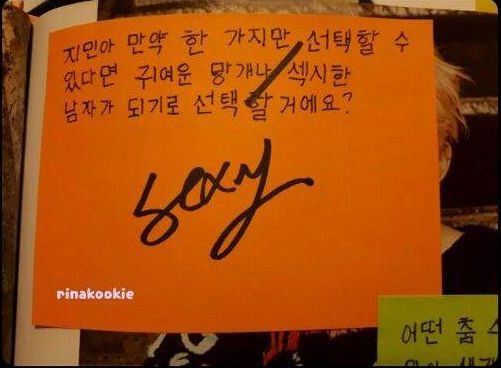 지민아 만약 한 가지만 선택할 수
있다면 귀여운 망개나 섹시한
남자가 되기로 선택할 거에요?
sexy
rinakookie
어떤 춤